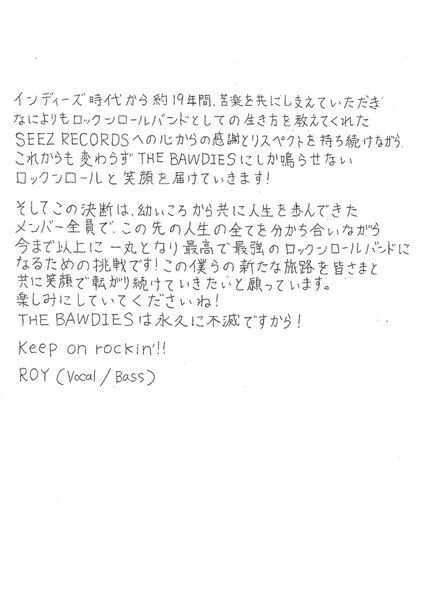 インディーズ時代から約19年間、苦楽を共にし支えていただき
なによりもロックンロールバンドとしての生き方を教えてくれた
SEEZ RECORDSへの心からの感謝とリスペクトを持ち続けながら、
これからも変わらずTHE BAWDIESにしか鳴らせない
ロックンロールと笑顔を届けていきます!
そしてこの決断は、幼いころから共に人生を歩んできた
メンバー全員で、この先の人生の全てを分かち合いながら
今まで以上に一丸となり最高で最強のロックンロールバンドに
なるための挑戦です!この僕らの新たな旅路を皆さまと
共に笑顔で転がり続けていきたいと願っています。
楽しみにしていてくださいね!
THE BAWDIESは永久に不滅ですから!
Keep on rockin'!!
ROY (Vocal/Bass)